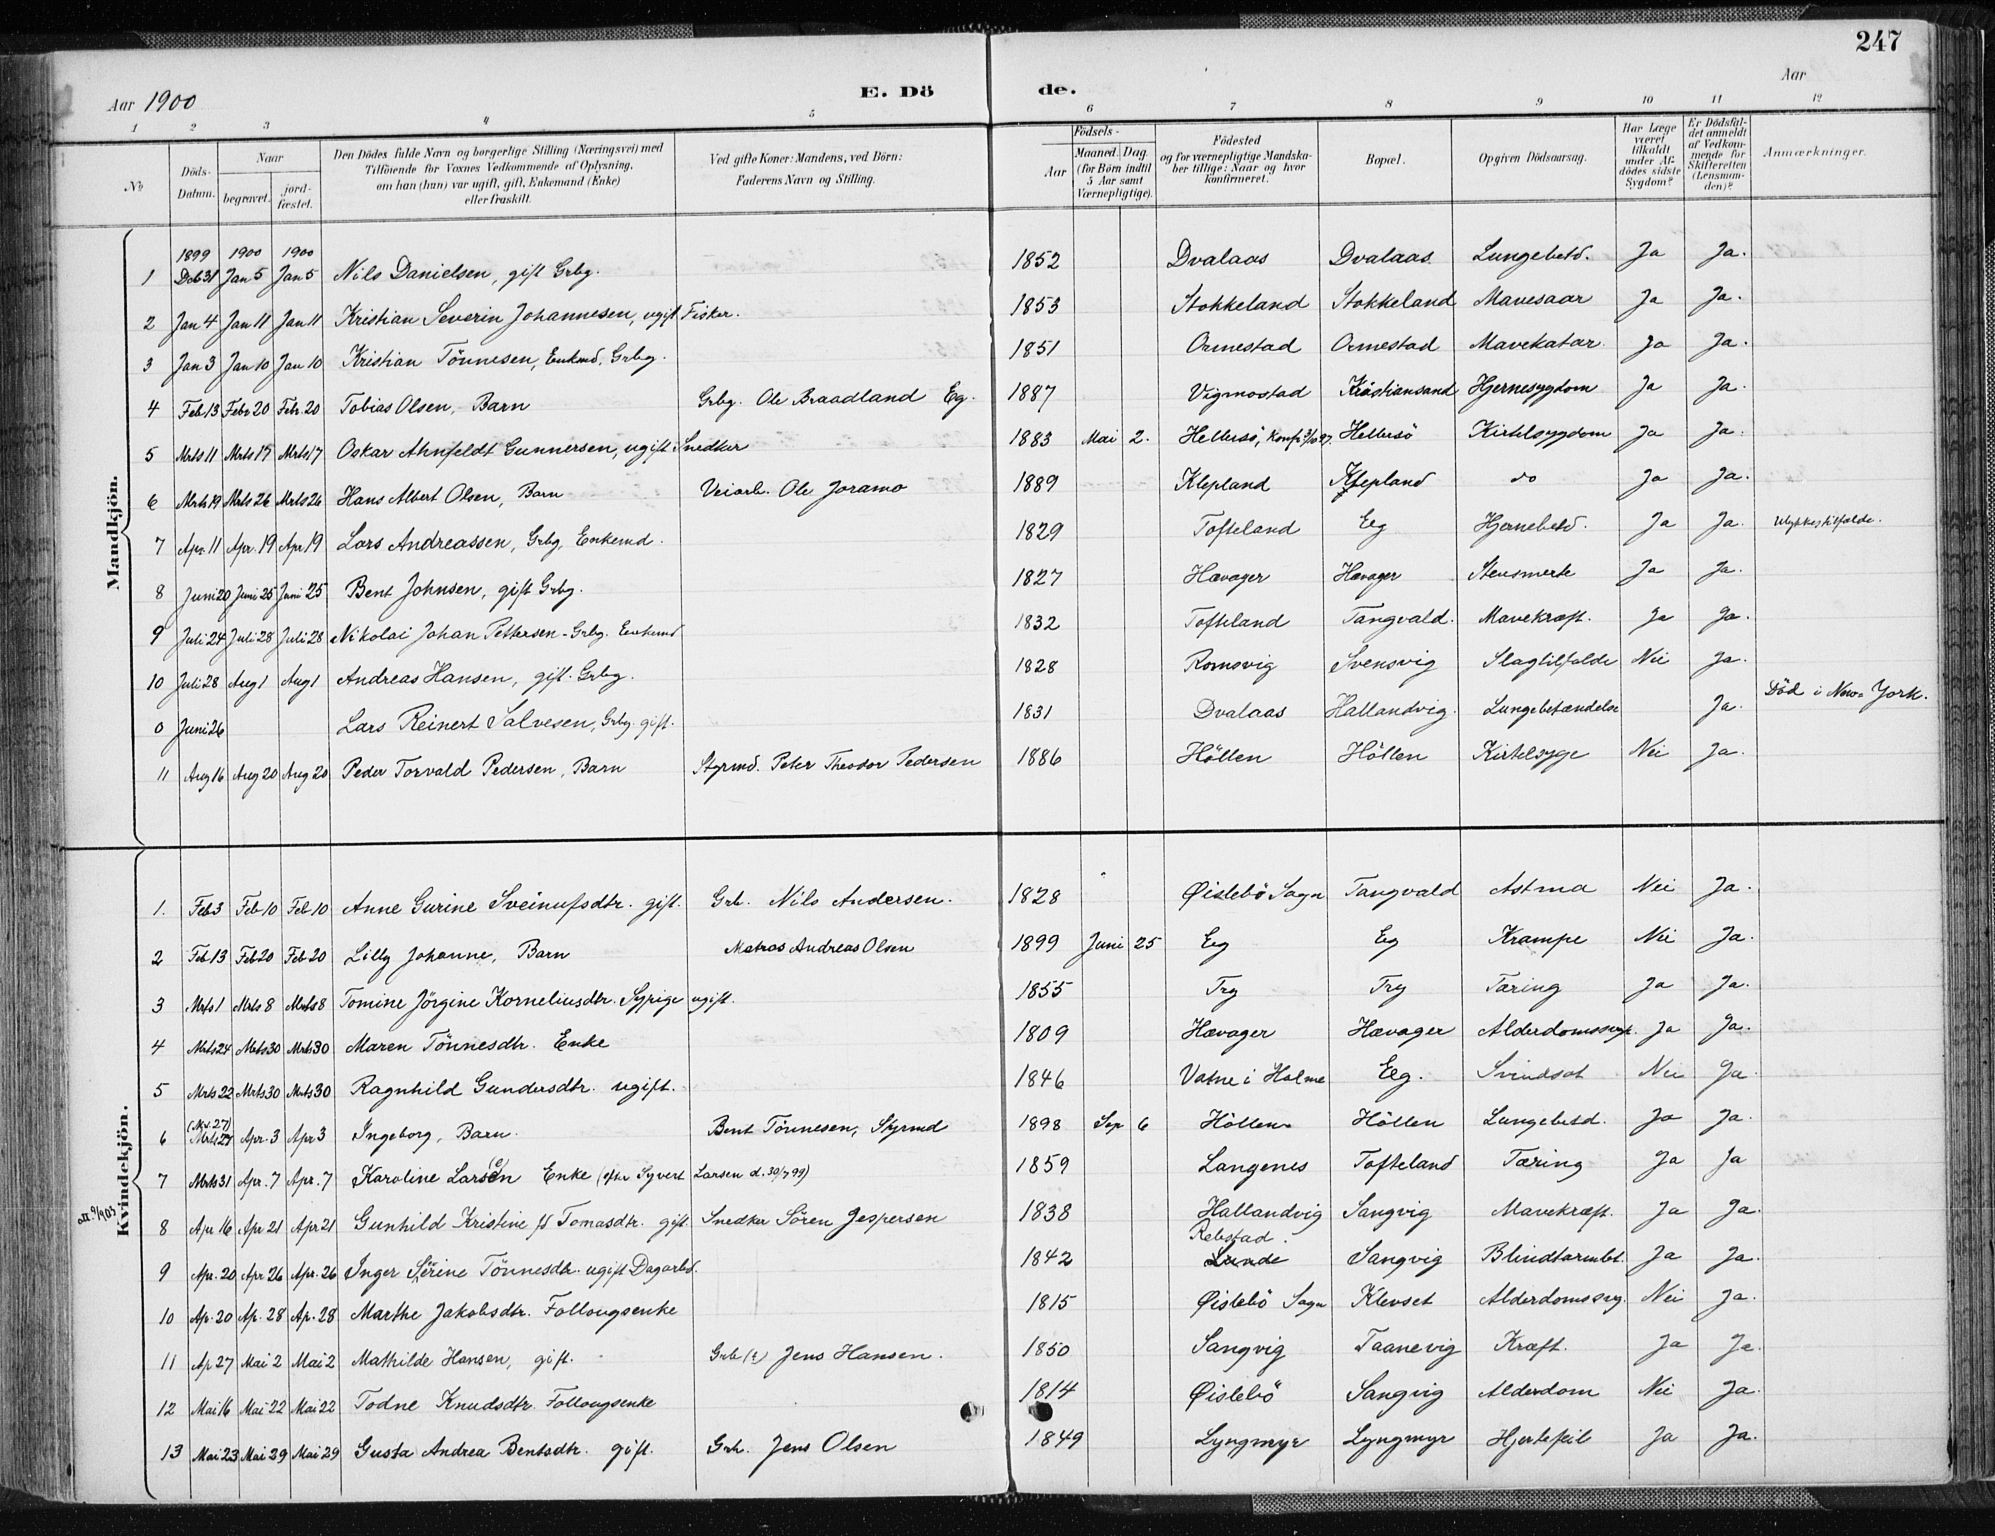 247
Aar 1900
E. Dö de.
Aar
1 2 3 4 5 6 7 8 9 10 11 12
No
Döds-Datum.
Naar begravet. jord-fæstet.
Den Dödes fulde Navn og borgerlige Stilling (Næringsvei) med Tilföiende for Voxnes Vedkommende af Oplysning, om han (hun) var ugift, gift, Enkemand (Enke) eller fraskilt.
Ved gifte Koner: Mandens, ved Börn: Faderens Navn og Stilling.
Födsels-
Aar
Maaned. Dag (for Börn indtil 5 Aar samt Værnepligtige).
Födested og for værnepligtige Mandska-ber tillige: Naar og hvor konfirmeret.
Bopæl.
Opgiven Dödsaarsag.
Har Læge været tilkaldt under Af-dödes sidste Sygdom?
Er Dödsfal-det anmeldt af Vedkom-mende for Skifteretten (Lensman-den)?
Anmærkninger.
Mandkjön.
1899 1900 1900
1 Deb 31 Jan 5 Jan 5 Nils Danielsen, gift Grbg. 1852 Dvalaas Dvalaas Lungebetd. Ja Ja.
2 Jan 4 Jan 11 Jan 11 Kristian Severin Johannesen, ugift Fisker. 1853 Stokkeland Stokkeland Mavesaar Ja Ja.
3 Jan 3 Jan 10 Jan 10 Kristian Tönnesen, Enkmd. Grbg. 1851 Ormestad Ormestad Mavekatar Ja Ja.
4 Feb 13 Febr 20 Febr. 20 Tobias Olsen, Barn Grbg. Ole Braadland Eg. 1887 Vigmostad Kristiansand Hjernesygdom Ja Ja.
5 Mrts 11 Mrts 17 Mrts 17 Oskar Ahnfeldt Gunnersen, ugift Snedker 1883 Mai 2. Hellersö, Konf. Hellersö Kirtelsygdom Ja Ja.
6 Mrts 19 Mrts 26 Mrts 26 Hans Albert Olsen, Barn Veiarb. Ole Joramo 1889 Klepland Klepland do Ja Ja.
7 Apr. 11 Apr. 19 Apr 19 Lars Andreassen, Grbg, Enkemd. 1829 Tofteland Eeg Hjernebetd. Ja Ja. Ulykkestilfælde.
8 Juni 20 Juni 25 Juni 25 Bent Johnsen, gift Grbg. 1827 Hævager Hævager Stensmerte Ja Ja.
9 Juli 24 Juli 28 Juli 28 Nikolai Johan Pettersen - Grbg. Enkemd 1832 Tofteland Tangvald. Mavekræft. Ja Ja.
10 Juli 28 Aug 1 Aug 1 Andreas Hansen, gift. Grbg. 1828 Romsvig Svensvig Slagtilfælde Nei Ja.
0 Juni 26 Lars Reinert Salvesen, Grbg. gift. 1831 Dvalaas Hallandvig. Lungebetændelse Ja. Död i New-York.
11 Aug 16 Aug 20 Aug 20 Peder Torvald Pedersen, Barn Styrmd. Peter Theodor Pedersen 1886 Höllen Höllen Kirtelsyge Nei Ja.
Kvindekjön.
1. Feb 3 Feb 10 Feb 10 Anne Gurine Sveinufsdtr. gift. Grb. Nils Andersen. 1828 Øislebö Sogn Tangvald Astma Nei Ja.
2 Feb 13 Feb 20 Feb 20 Lilly Johanne, Barn Matros Andreas Olsen 1899 Juni 25 Eg Eg Krampe Nei Ja.
3 Mrts 1 Mrts 8 Mrts 8 Tomine Jörgine Korneliusdtr. Sypige ugift. 1855 Try Try Tæring Ja Ja.
4 Mrts 24 Mrts 30 Mrts 30 Maren Tönnesdtr. Enke 1809 Hævager Hævager Alderdomssvgh. Ja Ja.
5 Mrts 22 Mrts 30 Mrts 30 Ragnhild Gundersdtr. ugift. 1846 Vatne i Holme Eeg. Svindsot Nei Ja.
6 Mrts 27 Apr. 3 Apr 3 Ingeborg, Barn. Bent Tönnesen, Styrmd 1898 Sep 6 Höllen Höllen Lungebetd. Ja Ja.
7 Mrts 31 Apr. 7 Apr. 7 Karoline Larsen Enke (efter Syvert Larsen d. 30/7 99) 1859 Langenes Tofteland Tæring Ja Ja
8 Apr 16 Apr 21 Apr 21 Gunhild Kristine fs Tomasdtr. gift Snedker Sören Jespersen 1838 Hallandvig Sangvig Mavekræft. Ja Ja.
9 Apr. 20 Apr 26 Apr. 26 Inger Serine Tönnesdtr. ugift Dagarbd. 1842 Rebstad. Lunde Sangvig Blindtarmbt. Ja Ja.
10 Ap. 20 Ap. 28 Ap. 28 Marthe Jakobsdtr. Follougsenke 1815 Øislebö Sogn Klevset Alderdomssvg. Nei Ja.
11 Ap 27 Mai 2 Mai 2 Mathilde Hansen, gift. Grb (?) Jens Hansen. 1850 Sangvig Taanevig Kræft. Ja Ja.
12 Mai 16 Mai 22 Mai 22 Todne Knudsdtr. Follougsenke 1814 Øislebö Sangvig Alderdom Nei Ja.
13 Mai 23 Mai 29 Mai 29 Gusta Andrea Bentsdtr. gift. Grb. Jens Olsen 1849 Lyngmyr Lyngmyr Hjertefeil Ja Ja.